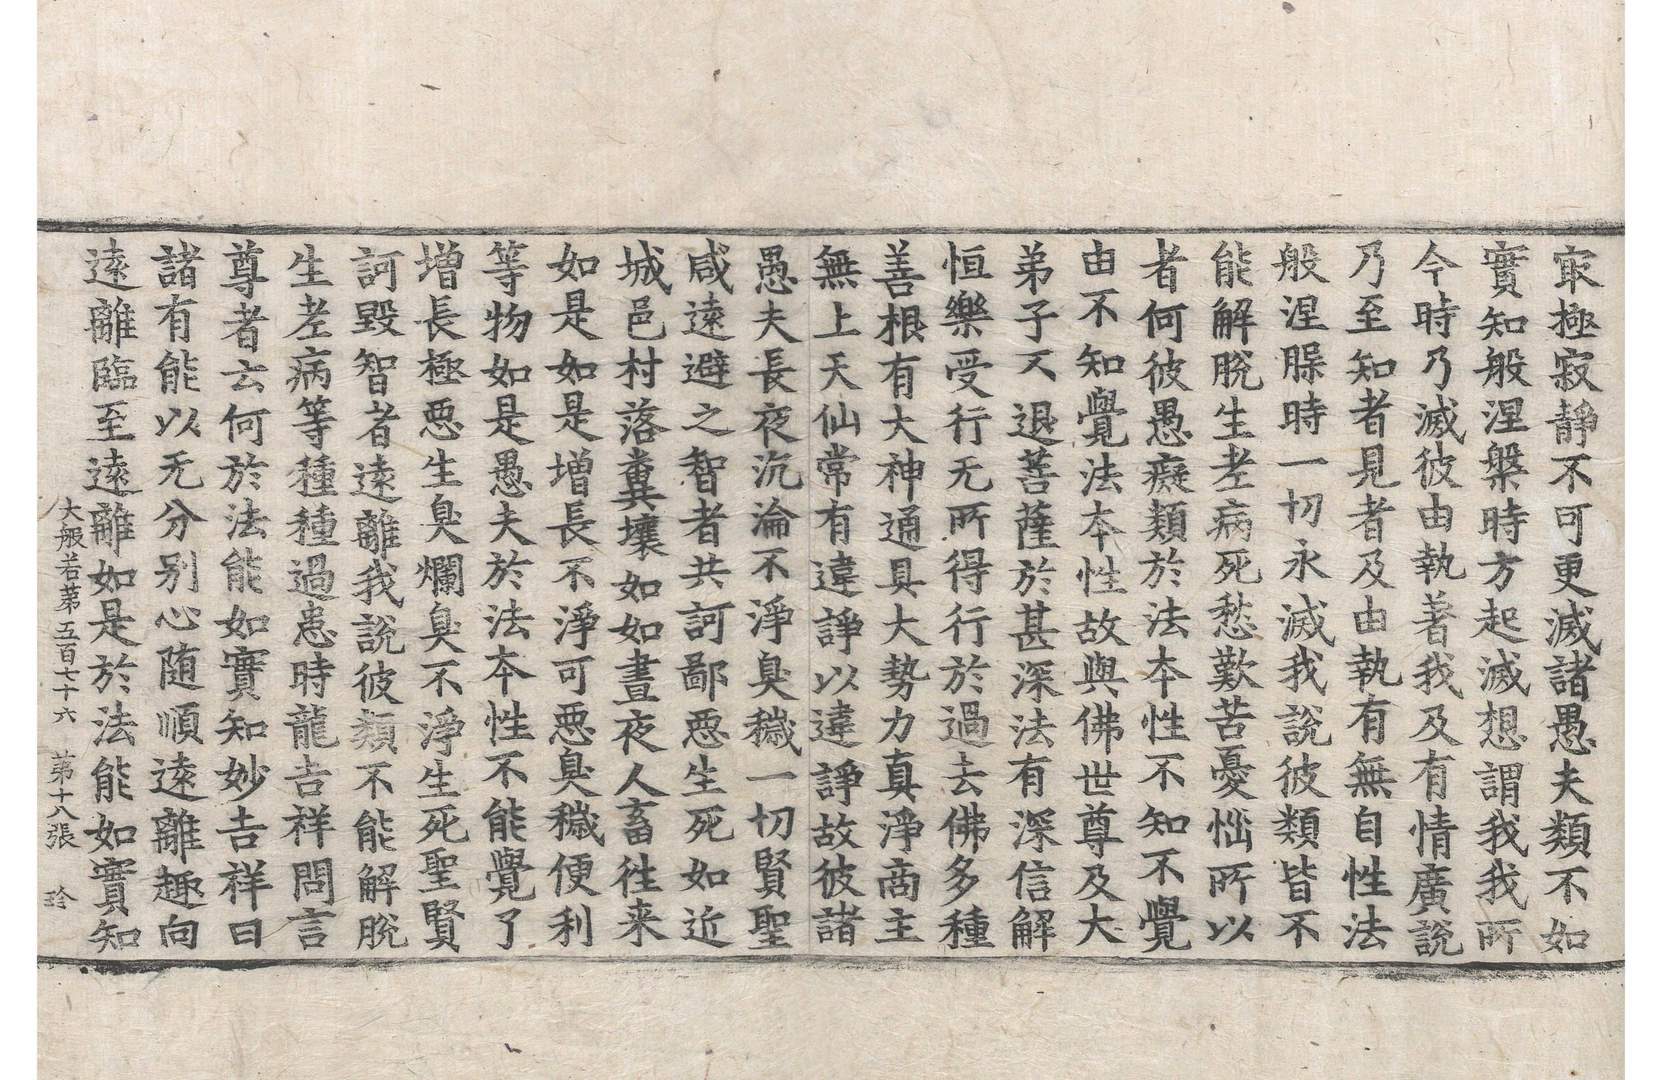 㝡極寂靜不可更滅諸愚夫類不如
實知般涅槃時方起滅想謂我我所
今時乃滅彼由執著我及有情廣說
乃至知者見者及由執有無自性法
般涅槃時一切永滅我說彼類皆不
能解脫生老病死愁歎苦憂惱所以
者何彼愚癡類於法本性不知不覺
由不知覺法本性故與佛世尊及大
弟子不退菩薩於甚深法有深信解
恒樂受行无所得行於過去佛多種
善根有大神通具大勢力真淨商主
無上天仙常有違諍以違諍故彼諸
愚夫長夜沉淪不淨臭穢一切賢聖
咸遠避之智者共訶鄙惡生死如近
城邑村落糞壤如如晝夜人畜往来
如是如是增長不淨可惡臭穢便利
等物如是愚夫於法本性不能覺了
增長極惡生臭爛臭不淨生死聖賢
訶毀智者遠離我說彼類不能解脫
生老病等種種過患時龍吉祥問言
尊者云何於法能如實知妙吉祥曰
諸有能以无分別心随順遠離趣向
遠離臨至遠離如是於法能如實知
大般若第五百七十六 第十八張 珍